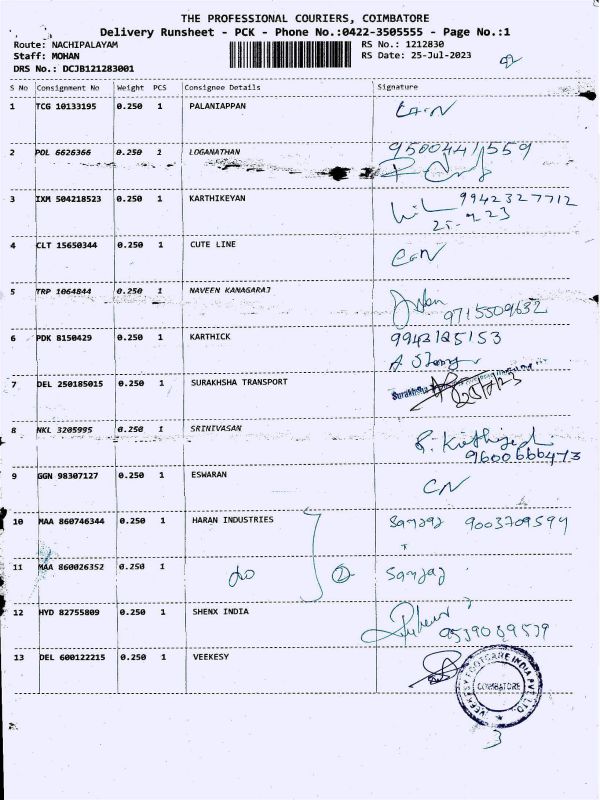 THE PROFESSIONAL COURIERS, COIMBATORE
Delivery Runsheet - PCK - Phone No.:0422-3505555 - Page No.:1
Route: NACHIPALAYAM RS No.: 1212830
Staff: MOHAN RS Date: 25-Jul-2023
DRS No.: DCJB121283001
S No Consignment No Weight PCS Consignee Details Signature
1 TCG 10133195 0.250 1 PALANIAPPAN
2 POL 6626366 0.250 1 LOGANATHAN 9500441559
3 IXM 504218523 0.250 1 KARTHIKEYAN 9942327712
4 CLT 15650344 0.250 1 CUTE LINE
5 TRP 1064844 0.250 1 NAVEEN KANAGARAJ 9715509632
6 PDK 8150429 0.250 1 KARTHICK 9942125153
7 DEL 250185015 0.250 1 SURAKHSHA TRANSPORT Surakhsha 25/7/23
8 NKL 3205995 0.250 1 SRINIVASAN
9600666473
9 GGN 98307127 0.250 1 ESWARAN CN
10 MAA 860746344 0.250 1 HARAN INDUSTRIES Sanjay 9003709594
11 MAA 860026352 0.250 1 do 2 Sanjay
12 HYD 82755809 0.250 1 SHENX INDIA
9539089539
13 DEL 600122215 0.250 1 VEEKESY
VEEKESY FOOTCARE INDIA PVT LTD
COIMBATORE
3